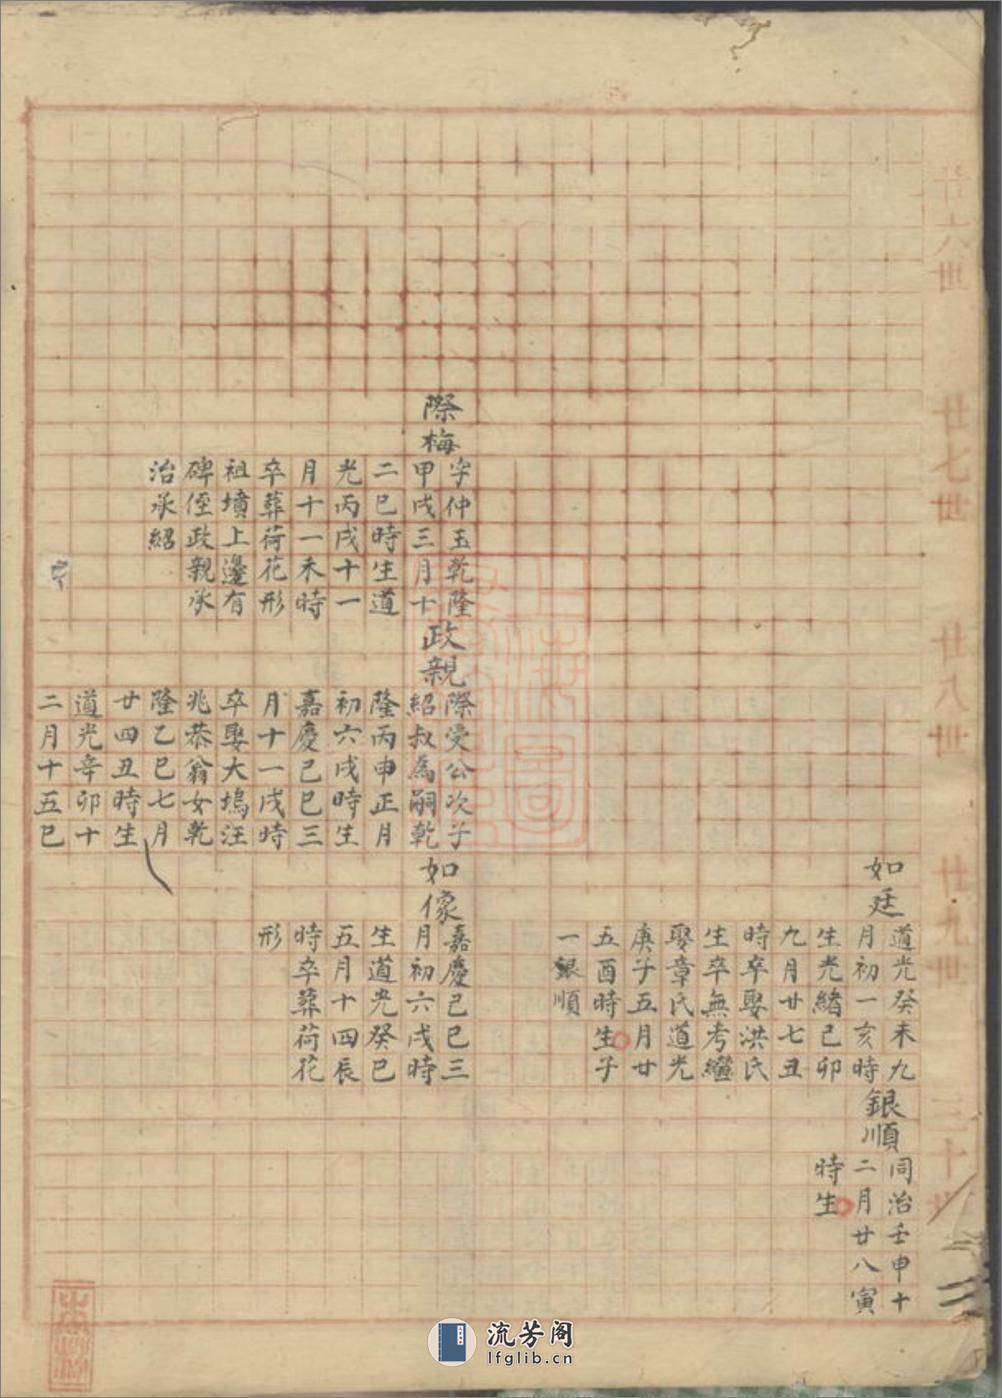 廿六世
廿七世
廿八世
廿九世
三十世
如廷
道光癸未九
月初一亥時
生光緒己卯
九月廿七丑
時卒娶洪氏
生卒無考繼
娶章氏道光
庚子五月廿
五酉時生子
一銀順
銀順
同治壬申十
二月廿八寅
時生
際梅
字仲玉乾隆
甲戌三月十
二巳時生道
光丙戌十一
月十一未時
卒葬荷花形
祖墳上邊有
碑侄政親承
治承紹
政親
際受公次子
紹叔為嗣乾
隆丙申正月
初六戌時生
嘉慶己巳三
月十一戌時
卒娶大塢汪
兆恭翁女乾
隆乙巳七月
廿四丑時生
道光辛卯十
二月十五巳
如像
嘉慶己巳三
月初六戌時
生道光癸巳
五月十四辰
時卒葬荷花
形
流芳阁
lfglib.cn